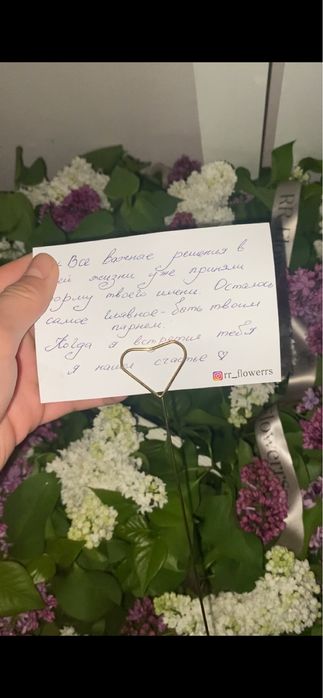 Все важные решения в
ей жизни уже приняли
форму твоего имени. Осталось
самое главное - быть твоим
парнем.
Когда я встретил тебя
я нашёл счастье ♡
rr_flowerrs
RR
lowerrs